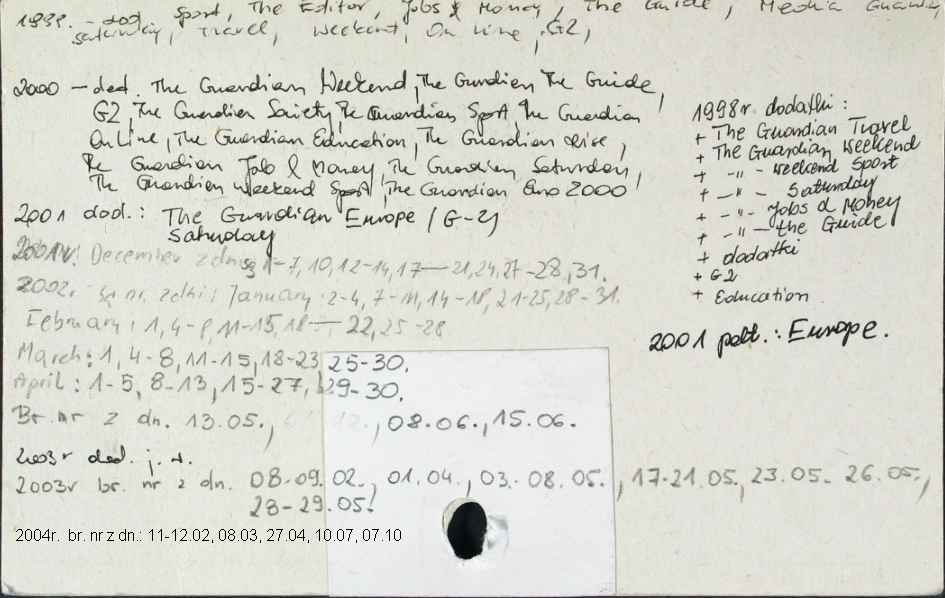 1999. - dod. Sport, The Editor, Jobs & Money, The Guide, Media Guardian
Saturday, Travel, Weekend, On line, G2,
2000 - dod. The Guardian Weekend, The Guardian The Guide,
G2, The Guardian Society, The Guardian Sport, The Guardian
OnLine, The Guardian Education, The Guardian
The Guardian Job & Money, The Guardian Saturday,
The Guardian Weekend Sport, The Guardian Euro 2000
2001 dod.: The Guardian Europe / G-2)
Saturday
1998r. dodatki:
+ The Guardian Travel
+ The Guardian Weekend
+ -"- Weekend Sport
+ -"- Saturday
+ -"- Jobs & Money
+ -"- the Guide
+ dodatki
+ G2
+ Education
2001 podt.: Europe.
2001r. December z dn. są 1-7, 10, 12-14, 17-21, 24, 27-28, 31.
2002r. są nr. z dn.: January: 2-4, 7-11, 14-18, 21-25, 28-31.
February: 1, 4-8, 11-15, 18-22, 25-28
March: 1, 4-8, 11-15, 18-23, 25-30.
April: 1-5, 8-13, 15-27, 29-30.
Br. nr z dn. 13.05., 08.06., 15.06.
2003r dod. j.w.
2003r br. nr z dn. 08-09.02., 01.04., 03.-08.05., 17-21.05., 23.05. 26.05.,
28-29.05.
2004r. br. nr z dn.: 11-12.02, 08.03, 27.04, 10.07, 07.10